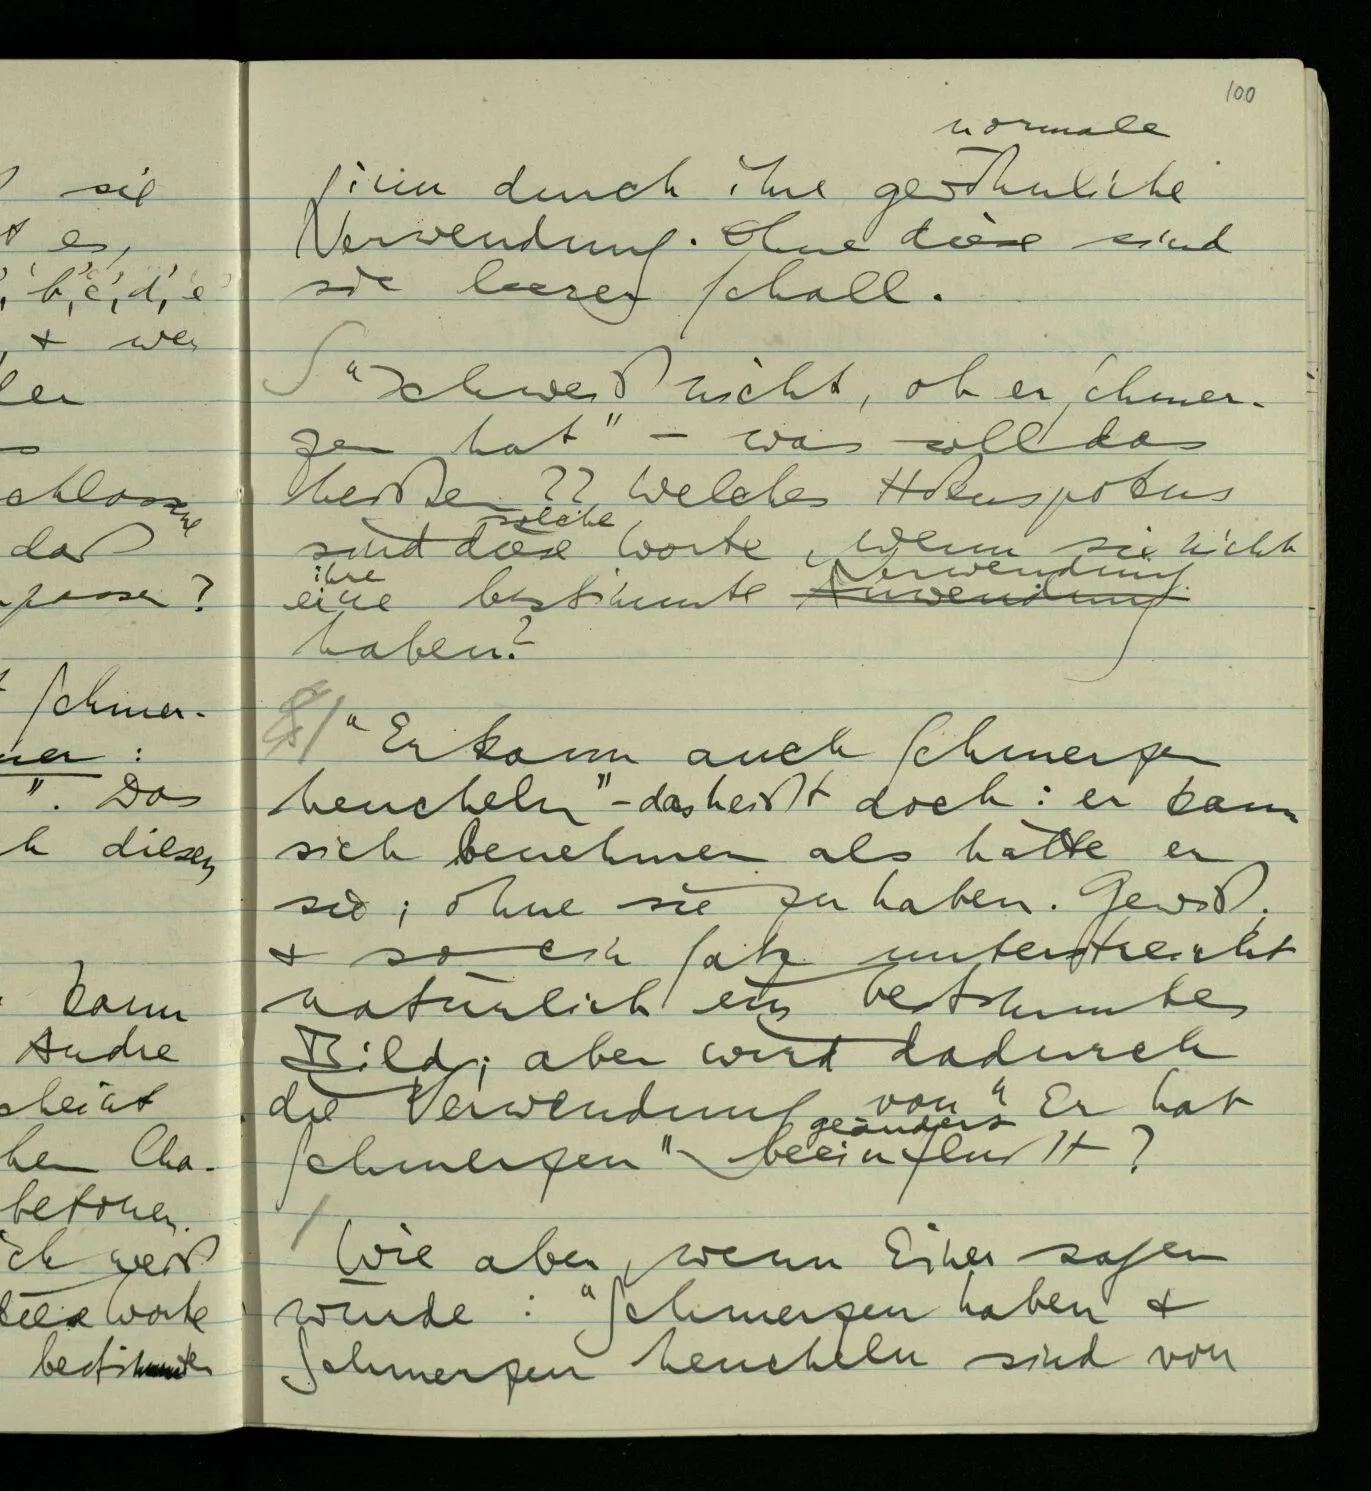 100
sie
es,
b', c', d', e'
+ wer
chlossene
daß
passen?
Schmer-
:
". Das
h diesen
kann
Andre
scheint
hen Cha-
betonen.
ich weiß
diese Worte
bestimmten
normale
Sinn durch ihre gewöhnliche
Verwendung. Ohne diese sind
sie leerer Schall.
S "Ich weiß nicht, ob er Schmer-
zen hat" – was soll das
heißen?? Welches Hokuspokus
solche
sind diese Worte, wenn sie nicht
ihre Verwendung
eine bestimmte Anwendung
haben?
/ "Er kann auch Schmerzen
heucheln" – das heißt doch: er kann
sich benehmen als hätte er
sie; ohne sie zu haben. Gewiß,
+ so ein Satz unterstreicht
natürlich ein bestimmtes
Bild; aber wird dadurch
die Verwendung von "Er hat
geändert
Schmerzen" beeinflußt?
/ Wie aber, wenn Einer sagen
würde: "Schmerzen haben +
Schmerzen heucheln sind von